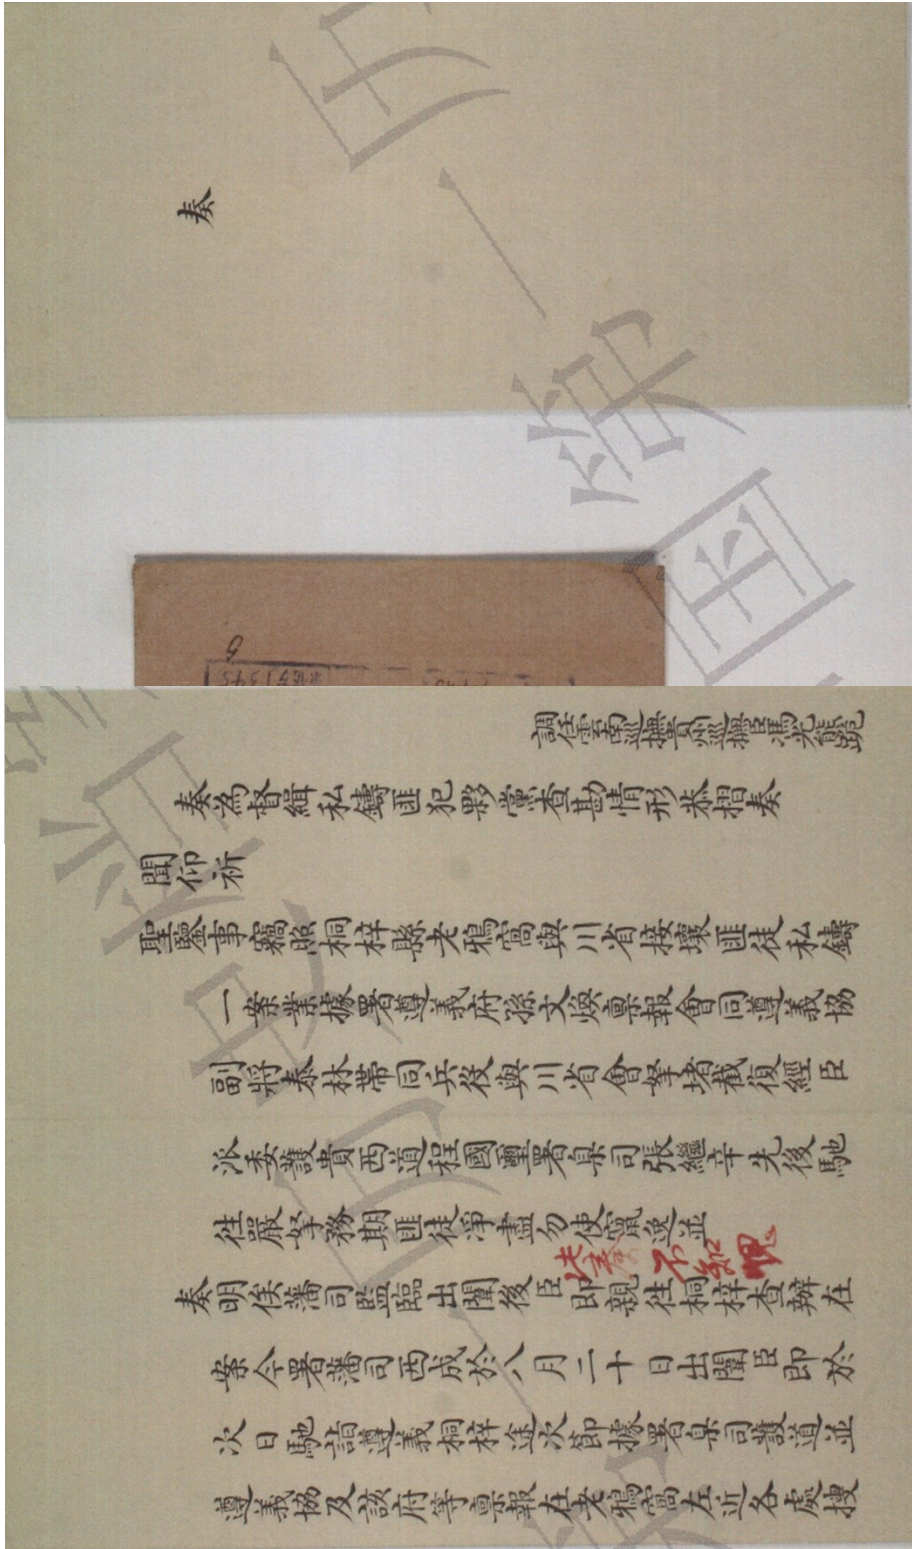 奏
調任雲南巡撫貴州巡撫臣馮光熊跪
奏為督緝私鑄匪犯夥黨查勘情形恭摺奏
聞仰祈
聖鑒事竊照桐梓縣老鴉窩與川省接壤匪徒私鑄
一案業據署遵義府孫文煥稟報會同遵義協
副將泰林帶同兵役與川省會拏堵截復經臣
派委護貴西道程國璽署臬司張繼辛先後馳
往嚴拏務期匪徒淨盡勿使竄逸並
不知愧
奏明俟藩司監臨出闈後臣即親往桐梓查辦在
案今署藩司西成於八月二十日出闈臣即於
次日馳詣遵義桐梓途次節據署臬司護道並
遵義協及該府等稟報在老鴉窩左近各處搜